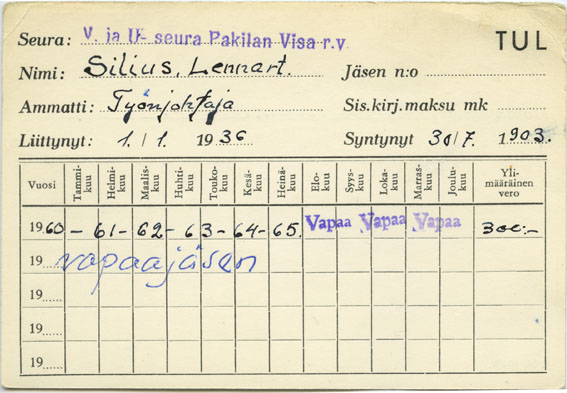 Seura: V. ja U- seura Pakilan Visa r.v. TUL
Nimi: Silius, Lennart. Jäsen n:o
Ammatti: Työnjohtaja Sis.kirj.maksu mk
Liittynyt: 1. / 1. 1936 Syntynyt 30/7. 1903.
Vuosi Tammi-kuu Helmi-kuu Maalis-kuu Huhti-kuu Touko-kuu Kesä-kuu Heinä-kuu Elo-kuu Syys-kuu Loka-kuu Marras-kuu Joulu-kuu Yli-määräinen vero
1960 - 61 - 62 - 63 - 64 - 65. Vapaa Vapaa Vapaa 300:-
19 vapaajäsen
19
19
19